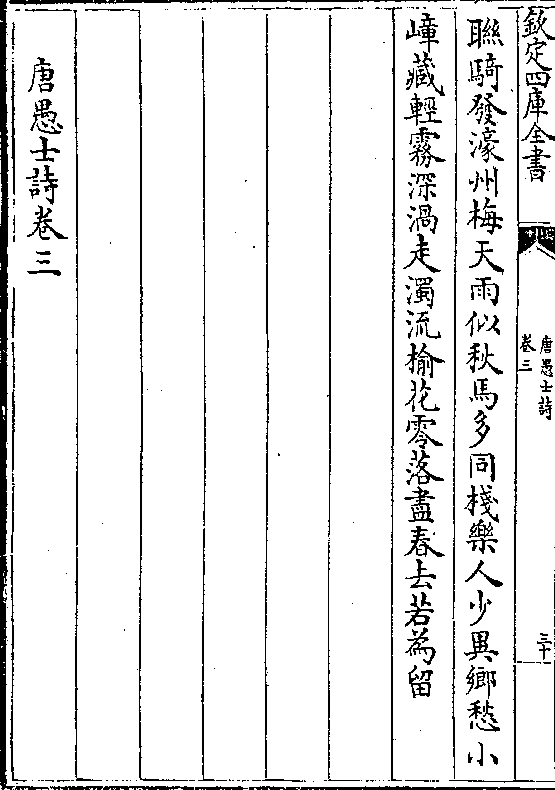 欽定四庫全書
唐愚士詩
卷三
三十
聯騎發濠州梅天雨似秋馬多同棧樂人少異鄉愁小
嶂藏輕霧深渦走濁流榆花零落盡春去若為留
唐愚士詩卷三